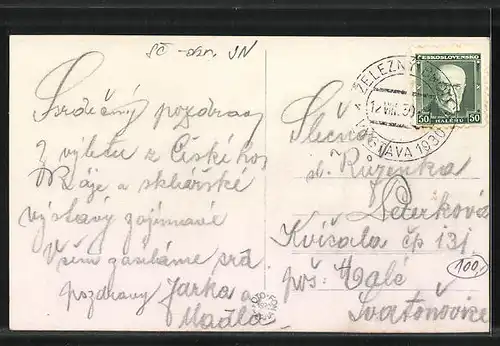 sč - osn. JN
Srdečný pozdrav
z výletu z Českého
Ráje a sklářské
výstavy zajímavé
Všem zasíláme srd.
pozdravy Jarka a
Madla
ČESKOSLOVENSKO
50 HALÉŘŮ 50
ŽELEZN
VÝSTAVA 1930
Slečna
sl. Růženka
Peterková
Kvíčala čp 131
pos: Malé
Svatoňovice
100,-